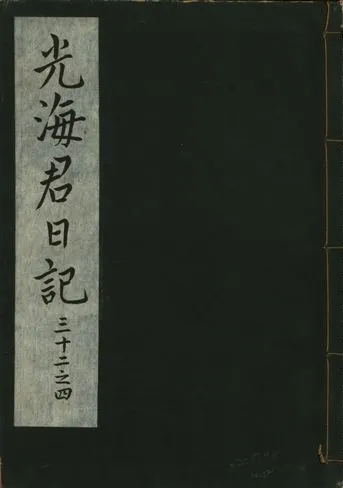 光海君日記 三十二之四